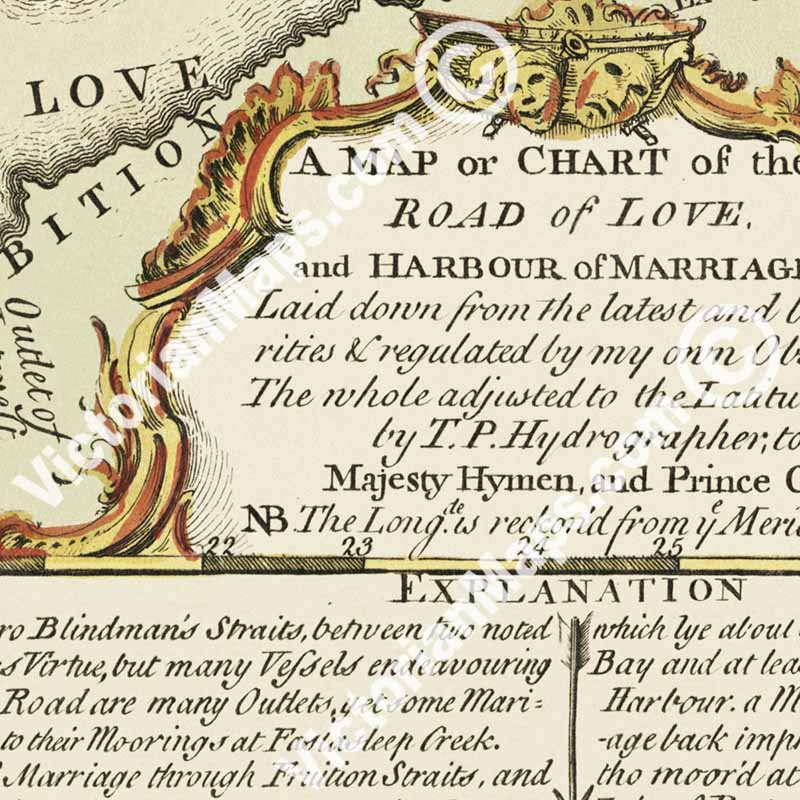 LOVE
BITION
Outlet of
A MAP or CHART of the
ROAD of LOVE,
and HARBOUR of MARRIAG
Laid down from the latest and b
rities & regulated by my own Ob
The whole adjusted to the Latitu
by T. P. Hydrographer, to
Majesty Hymen, and Prince C
NB. The Long.de is reckon'd from ye Meri
22 23 24 25
EXPLANATION
ro Blindman's Straits, between two noted
s Virtue, but many Vessels endeavouring
Road are many Outlets, yet some Mari=
to their Moorings at Fastasleep Creek.
Marriage through Fruition Straits, and
which lye about
Bay and at lea
Harbour. a M
-age back imp
tho moor'd at
VictorianMaps.com ©
VictorianMaps.com ©